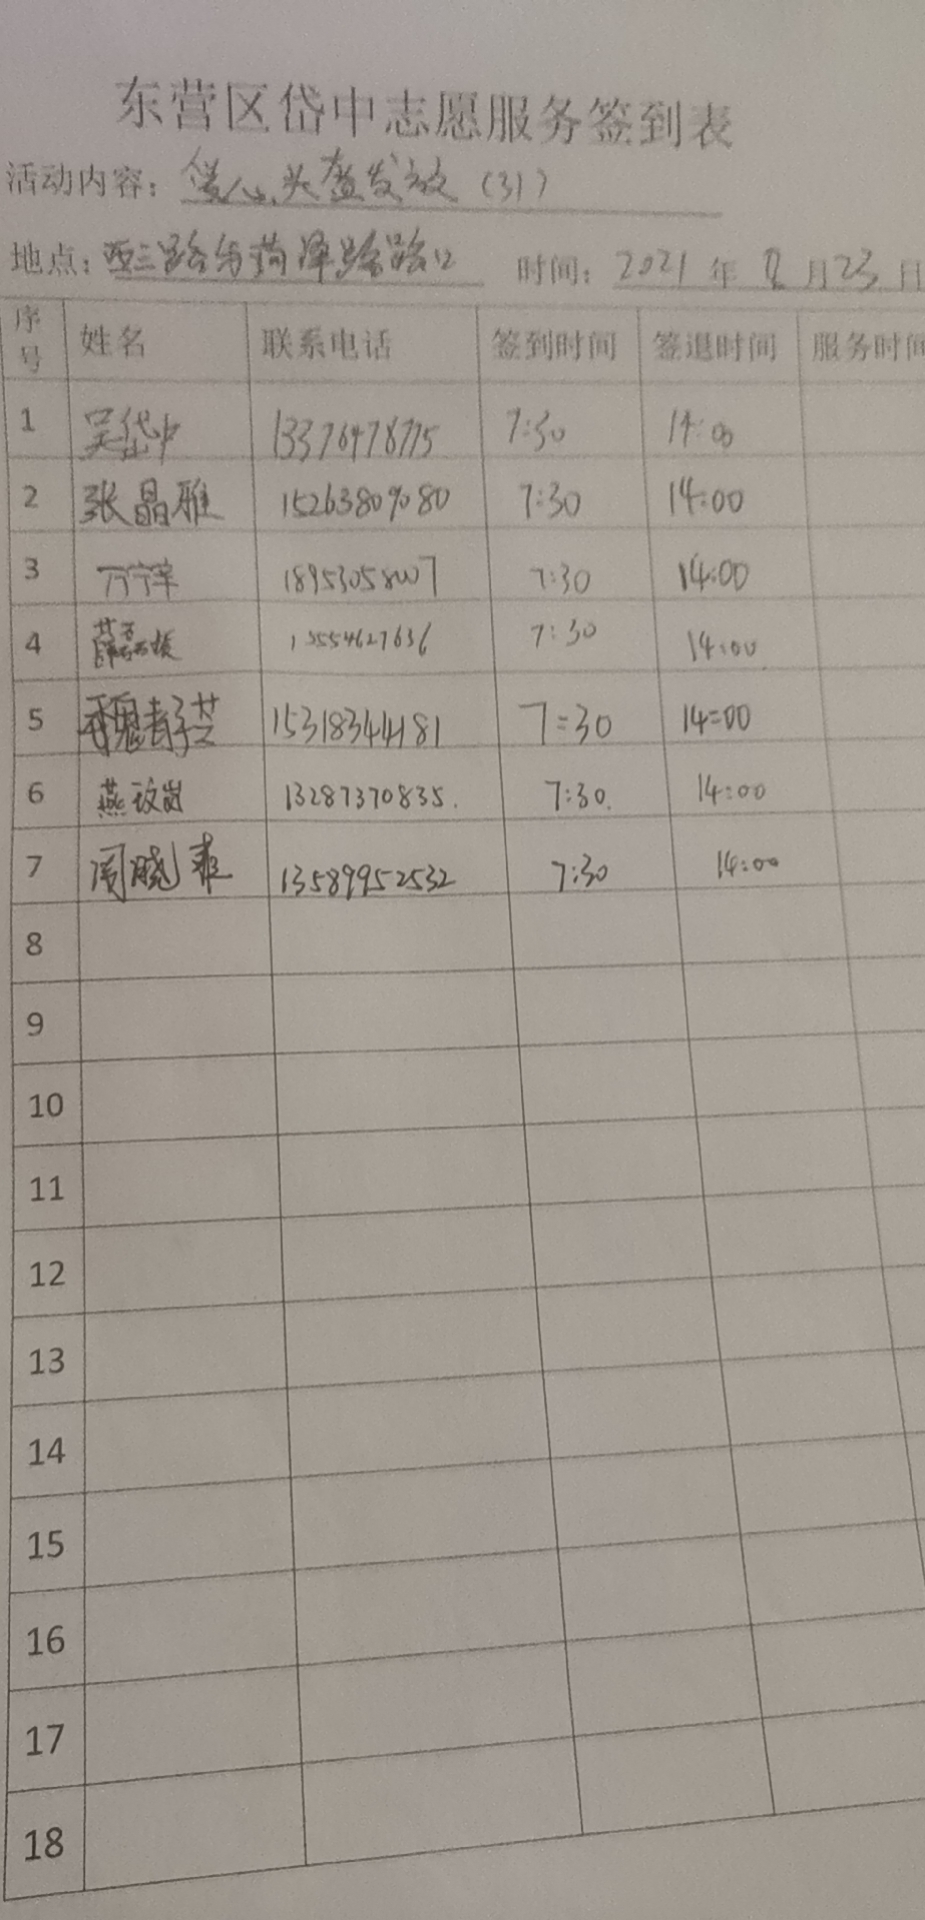 东营区岱中志愿服务签到表
活动内容：爱心头盔发放（31）
地点：西三路与菏泽路路口 时间：2021年8月23日
序号 姓名 联系电话 签到时间 签退时间 服务时间
1 吴岱中 7:30 14:00
2 张晶雅 15263809080 7:30 14:00
3 万宁宇 18953058007 7:30 14:00
4 薛磊 13554627636 7:30 14:00
5 魏孝芸 15318344181 7=30 14=00
6 燕玫岗 13287370835. 7:30. 14:00
7 周晓 13589952532 7:30 14:00
8
9
10
11
12
13
14
15
16
17
18